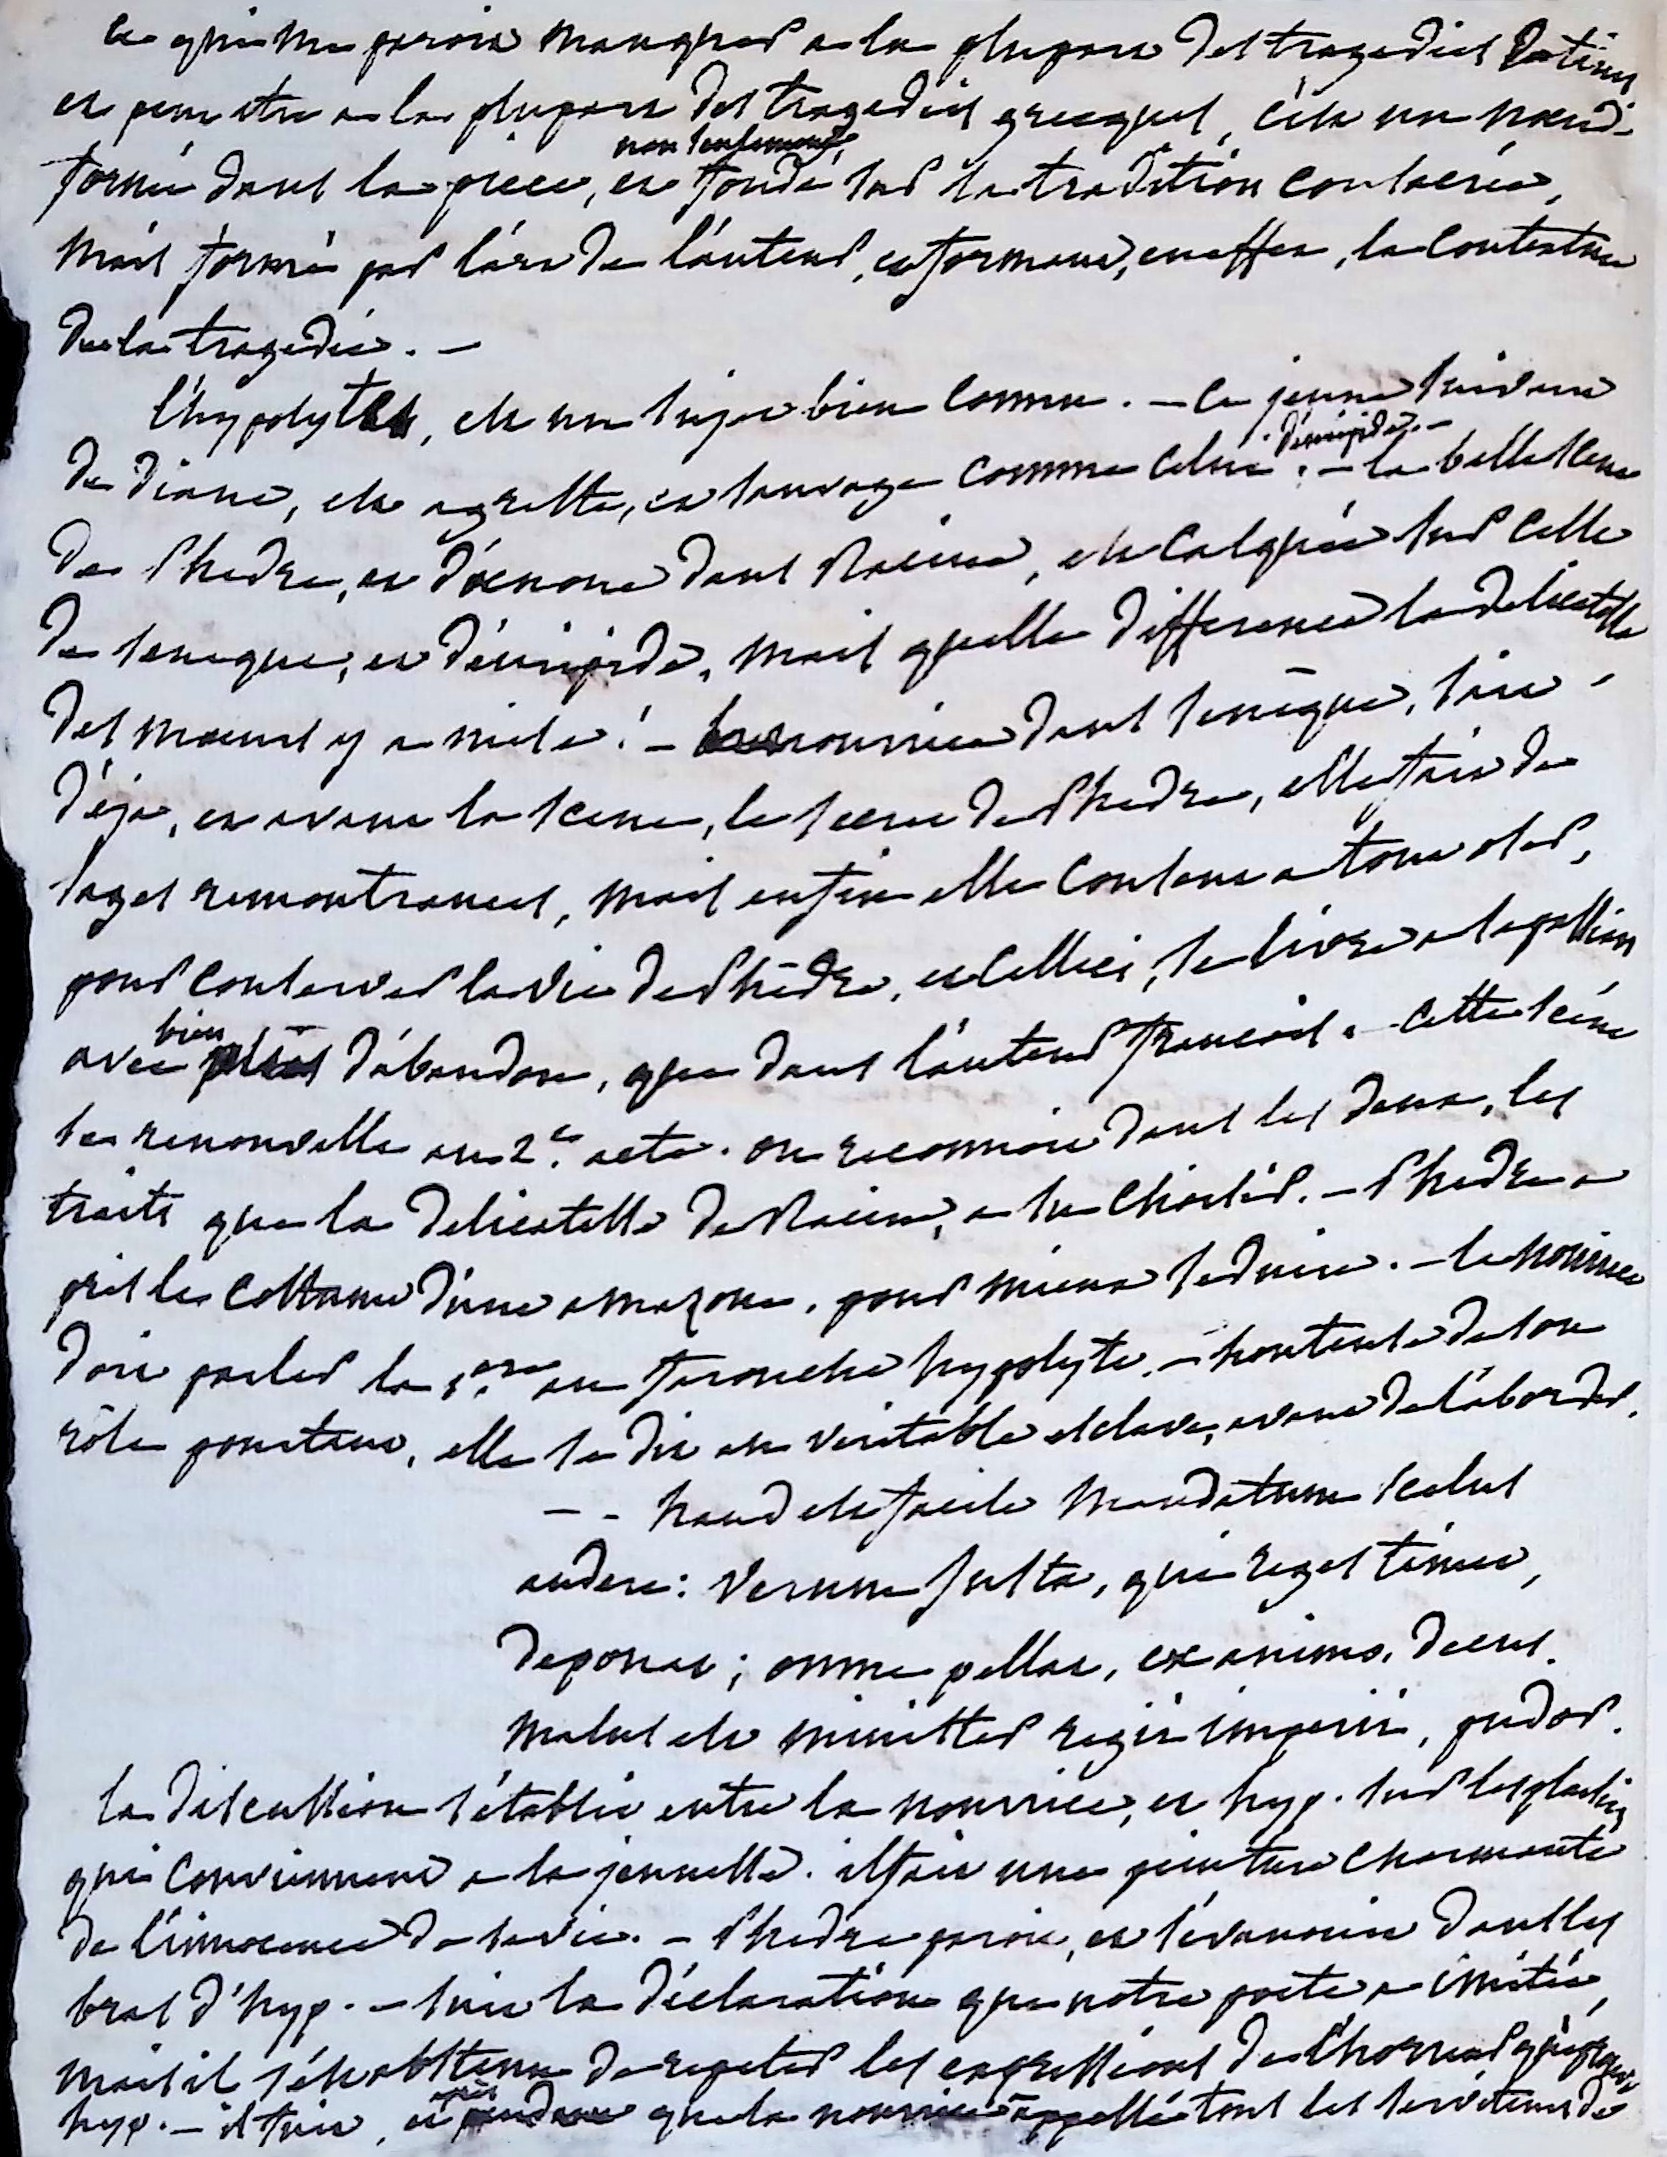 ce qui me paroit manquer a la plupart des tragedies latines
et peut etre a la plupart des tragedies grecques, c'est un noeud
non seulement
formé dans la piece, et fondé sur la tradition consacrée,
mais formé par l'art de l'auteur, et formant, en effet, la contexture
de la tragedie. —
l'hypolyte, est un sujet bien connu. — ce jeune suivant
d'euripide. —
de diane, est agreste, et sauvage comme celui. — la belle scene
de Phedre, et d'oenone dans Racine, est calquée sur celle
de seneque, et d'euripide, mais quelle difference la delicatesse
des moeurs y a mise! — la nourrice dans senèque, sait
déja, et avant la scene, le secret de Phedre, elle fait de
sages remontrances, mais enfin elle consent a tout oser,
pour conserver la vie de Phèdre, et celle ci, se livre a la passion
bien
avec plus d'abandon, que dans l'auteur françois. — cette scéne
se renouvelle au 2e. acte. on reconnoit dans les deux, les
traits que la delicatesse de Racine, a su choisir. — Phedre a
pris le costume d'une amazone, pour mieux seduire. — la nourrice
doit parler la 1ere au farouche hypolyte. — honteuse de son
rôle pourtant, elle se dit en veritable esclave, avant de l'aborder.
— - haud est facile mandatum scelus
audere: verum justa, qui reges timet,
deponat; omne pellat, ex animo, decus.
malus est minister regii imperii, pudor.
la discussion s'établit entre la nourrice, et hyp. sur les plaisirs
qui conviennent a la jeunesse. il fait une peinture charmante
de l'innocence de sa vie. — Phedre paroit, et s'évanouit dans les
bras d'hyp. — suit la déclaration que notre poete a imitée,
mais il s'est abstenu de repeter les expressions de l'horreur qu'éprouve
après
hyp. — il fuit, et que la nourrice a appellé tous les serviteurs de